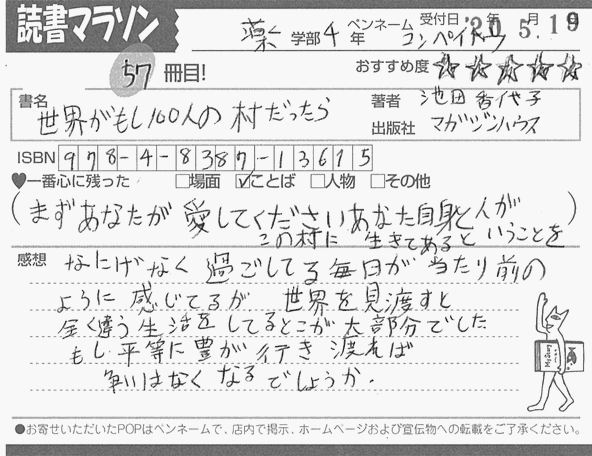 読書マラソン
薬 学部 4 年 ペンネーム コンペイトウ 受付日 '20年 5.月19
57 冊目! おすすめ度 ☆☆☆☆☆
書名 世界がもし100人の村だったら
著者 池田香代子
出版社 マガジンハウス
ISBN 978-4-8387-1361 5
♥一番心に残った □場面 ☑ことば □人物 □その他
(まずあなたが愛してくださいあなた自身と人が
この村に生きてあるということを)
感想 なにげなく過ごしてる毎日が当たり前の
ように感じてるが 世界を見渡すと
全く違う生活をしてるとこが大部分でした
もし平等に豊が行き渡れば
争いはなくなるでしょうか.
●お寄せいただいたPOPはペンネームで、店内で掲示、ホームページおよび宣伝物への転載をご了承ください。